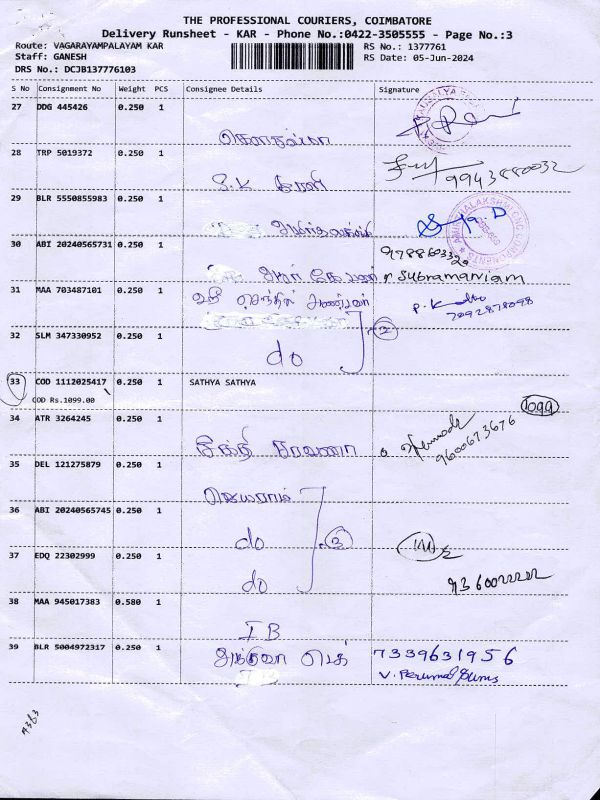 THE PROFESSIONAL COURIERS, COIMBATORE
Delivery Runsheet - KAR - Phone No.:0422-3505555 - Page No.:3
Route: VAGARAYAMPALAYAM KAR RS No.: 1377761
Staff: GANESH RS Date: 05-Jun-2024
DRS No.: DCJB137776103
S No Consignment No Weight PCS Consignee Details Signature
27 DDG 445426 0.250 1
28 TRP 5019372 0.250 1
S.K ராணி 9943880032
29 BLR 5550855983 0.250 1
30 ABI 20240565731 0.250 1
Subramaniam
31 MAA 703487101 0.250 1
ஸ்ரீ செந்தில்
7092878098
32 SLM 347330952 0.250 1 2
do
33 COD 1112025417 0.250 1 SATHYA SATHYA
COD Rs.1099.00 1099
34 ATR 3264245 0.250 1
சக்தி சரவணா 9600673676
35 DEL 121275879 0.250 1
ஜெயராம்
36 ABI 20240565745 0.250 1
do 3
37 EDQ 22302999 0.250 1
do
38 MAA 945017383 0.580 1
IB
39 BLR 5004972317 0.250 1 7339631956
V. Perumal